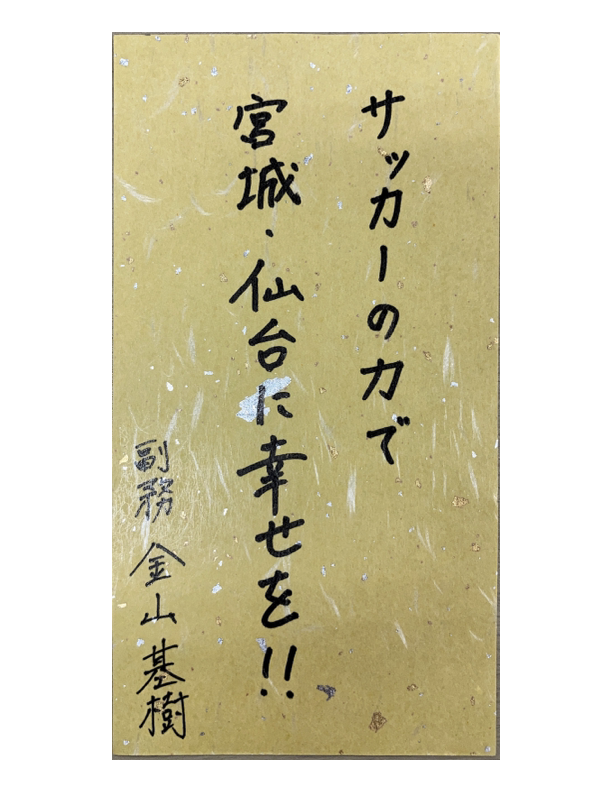 サッカーの力で
宮城・仙台に幸せを!!
副務 金山基樹